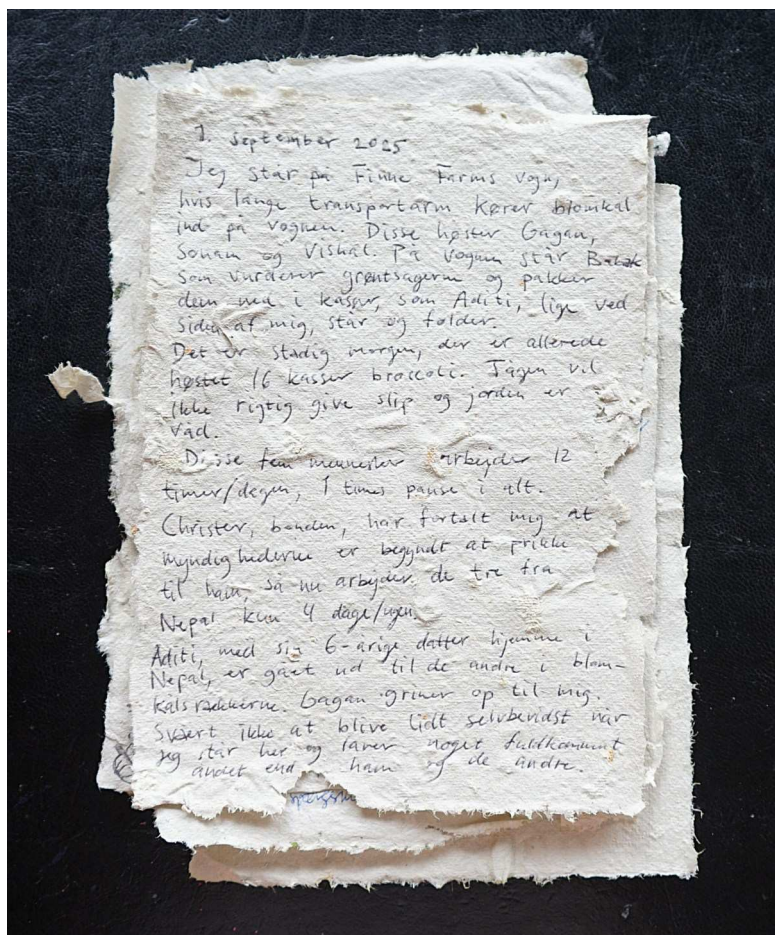 1. september 2025
Jeg står på Finne Farms vogn,
hvis lange transportarm kører blomkål
ind på vognen. Disse høster Gagan,
Sonam og Vishal. På vognen står
som vurderer grøntsagerne og pakker
dem ned i kasser, som Aditi, lige ved
siden af mig, står og folder.
Det er stadig morgen, der er allerede
høstet 16 kasser broccoli. Tågen vil
ikke rigtig give slip og jorden er
våd.
Disse fem mennesker arbejder 12
timer/dagen, 1 times pause i alt.
Christer, bonden, har fortalt mig at
myndighederne er begyndt at prikke
til ham, så nu arbejder de tre fra
Nepal kun 4 dage/ugen.
Aditi, med sin 6-årige datter hjemme i
Nepal, er gået ud til de andre i blom-
kålsrækkerne. Gagan griner op til mig.
Svært ikke at blive lidt selvbevidst når
jeg står her og laver noget fuldkomment
andet end ham og de andre.